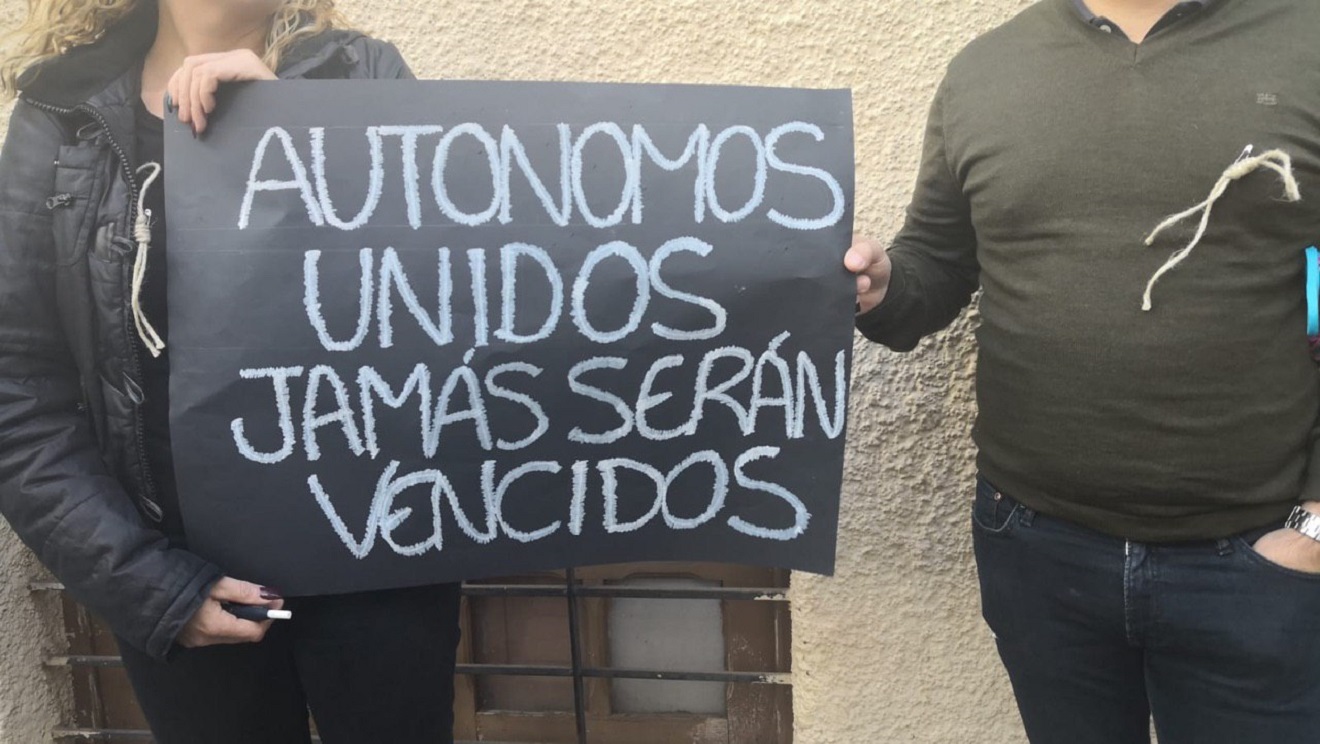 AUTONOMOS
UNIDOS
JAMÁS SERÁN
VENCIDOS